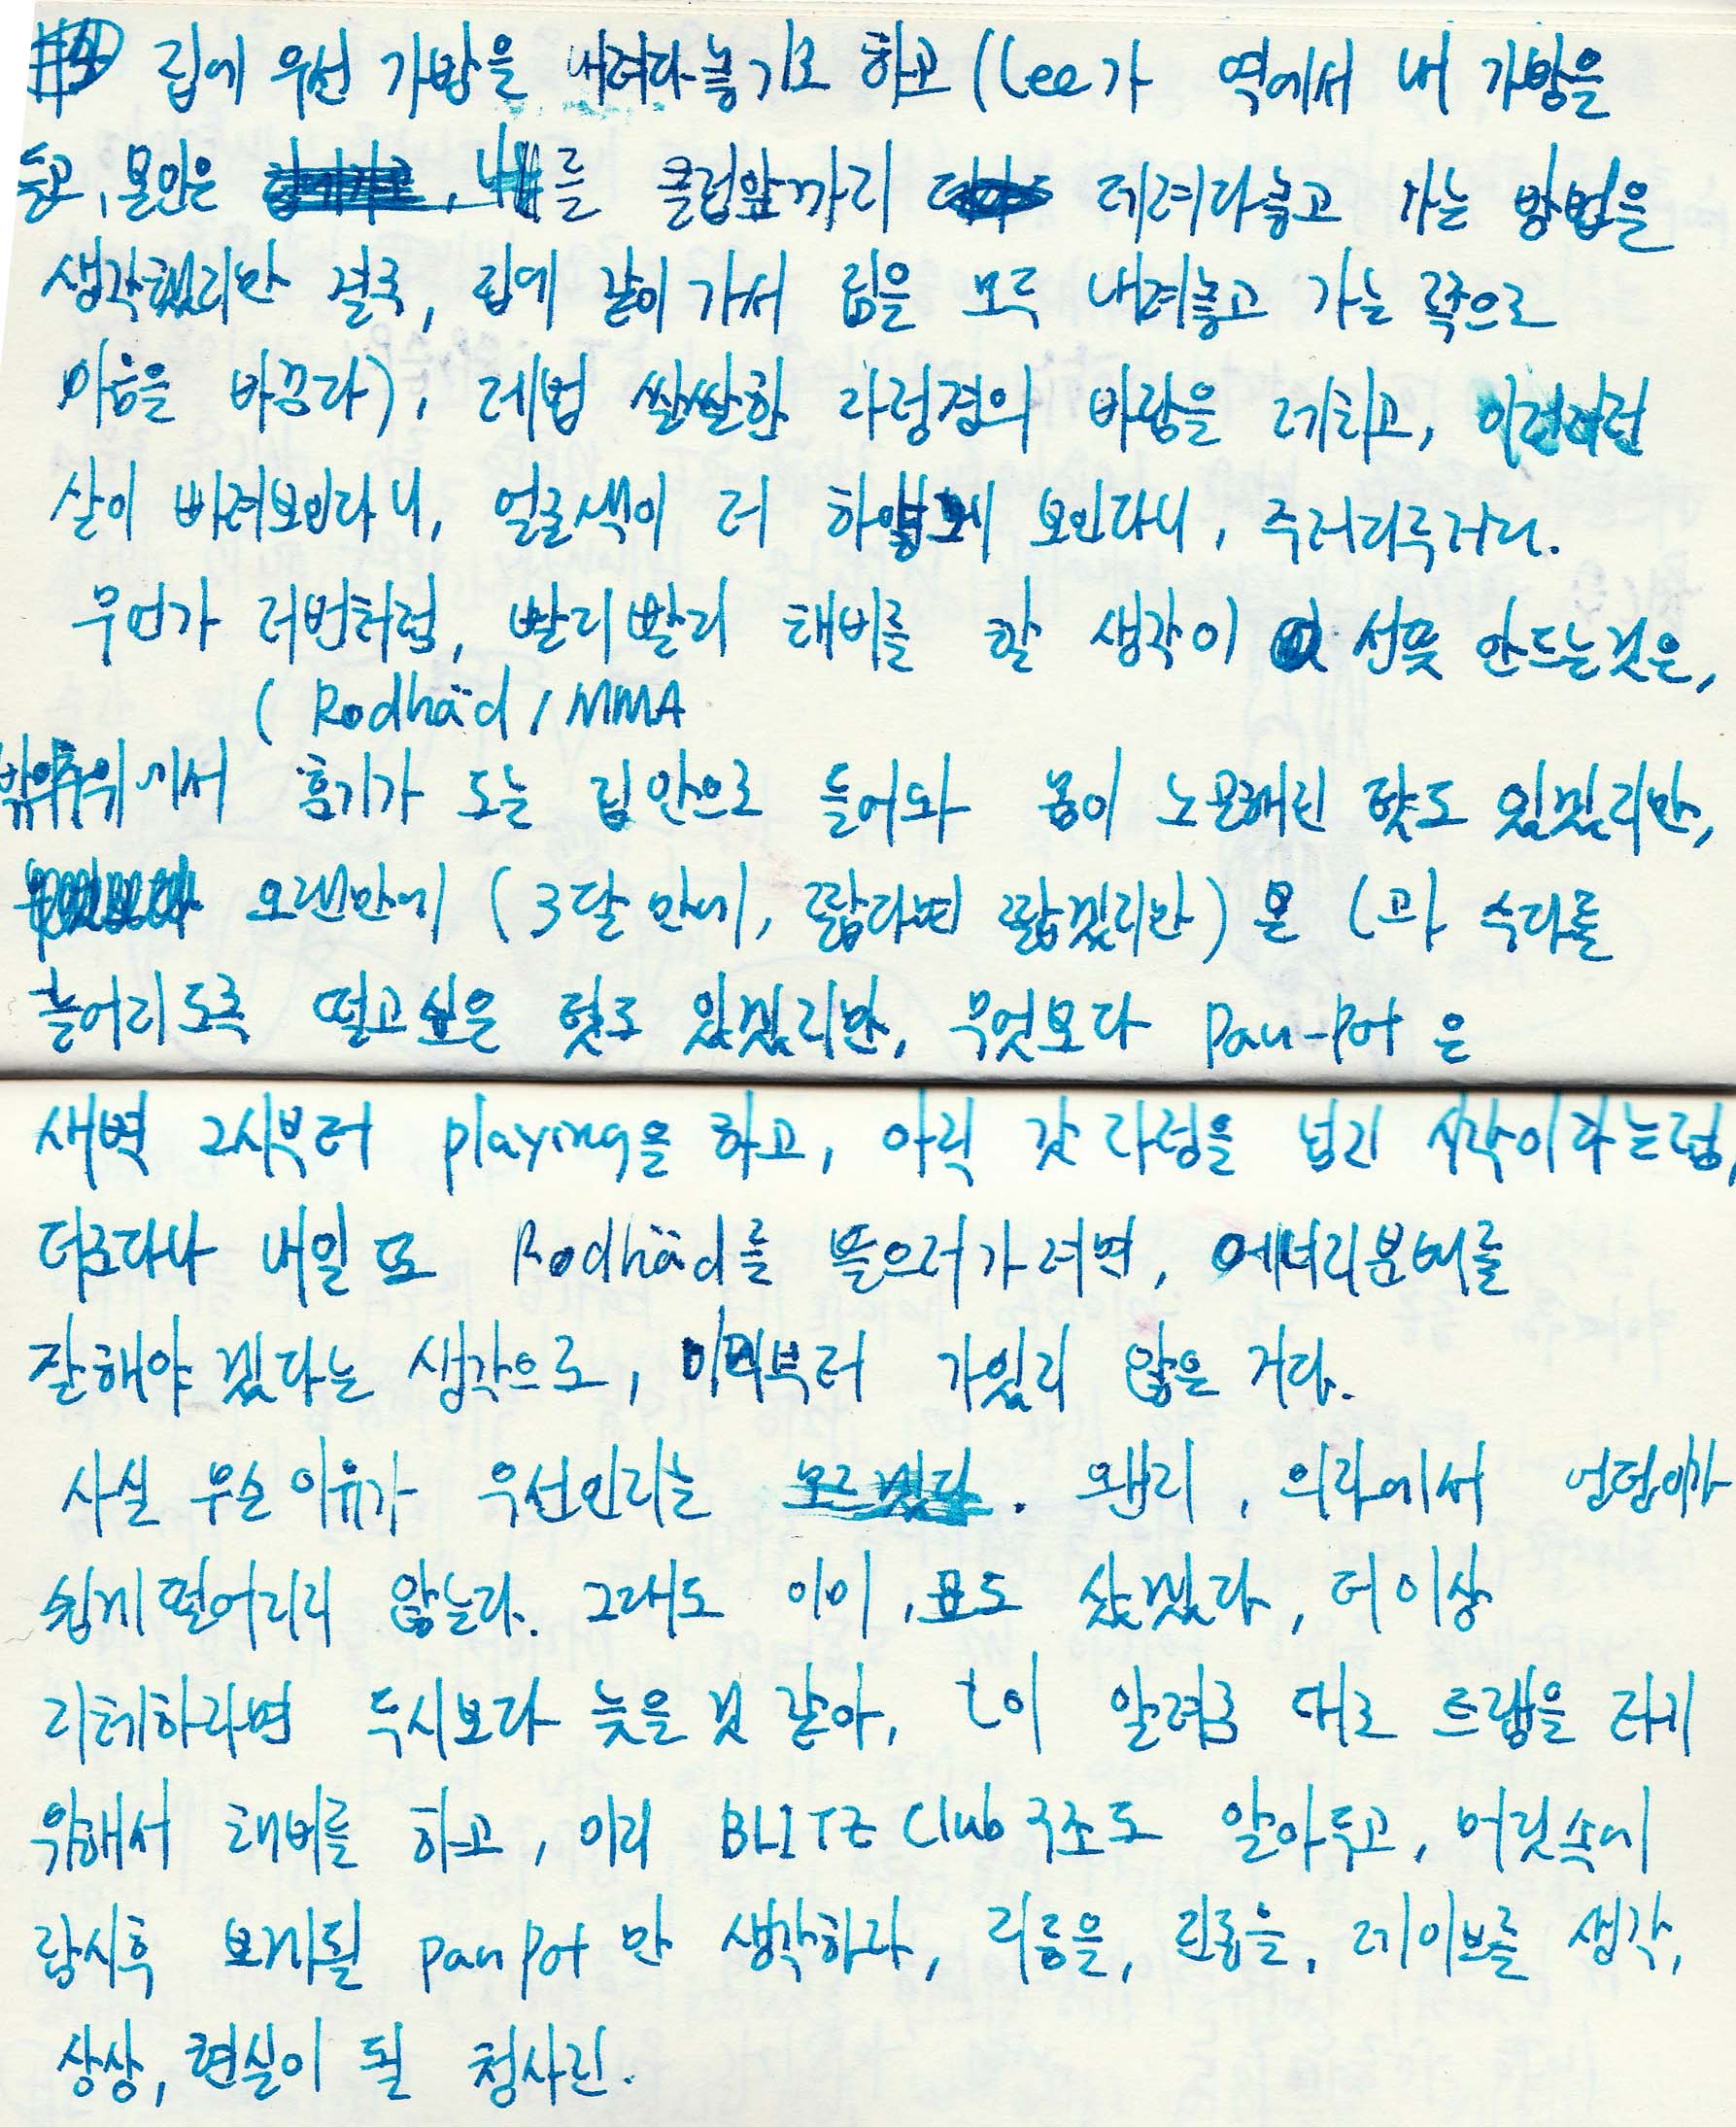 집에 우선 가방을 내려다놓기로 하고 (Lee가 역에서 내 가방을
들고, 몸만은 나를 클럽앞까지 데려다놓고 가는 방법을
생각했지만 결국, 집에 같이 가서 짐을 모두 내려놓고 가는 쪽으로
마음을 바꿨다), 제법 쌀쌀한 자정경의 바람을 제치고, 이런저런
살이 빠져보인다니, 얼굴색이 더 하얗게 보인다니, 주저리주저리.
무언가 저번처럼, 빨리빨리 채비를 할 생각이 선뜻 안드는것은,
( Rodhäd / MMA
밖추위에서 훈기가 도는 집안으로 들어와 몸이 노곤해진 탓도 있겠지만,
오랜만에 (3달만에, 짧다면 짧겠지만) 온 (과 수다를
늘어지도록 떨고싶은 탓도 있겠지만, 무엇보다 Pan-Pot은
새벽 2시부터 playing을 하고, 아직 갓 자정을 넘긴 시각이라는점,
더군다나 내일 또 Rodhäd를 들으러가려면, 에너지분배를
잘해야겠다는 생각으로, 미리부터 가있지 않은 거다.
사실 무슨 이유가 우선인지는 모르겠다. 왠지, 의자에서 엉덩이가
쉽게 떨어지지 않는다. 그래도 이미, 표도 샀겠다, 더이상
지체하자면 두시보다 늦을것 같아, t이 알려준 대로 트램을 타기
위해서 채비를 하고, 미리 BLITZ Club 구조도 알아두고, 머릿속에
잠시후 보게될 pan pot 만 생각하자, 리듬을, 진동을, 레이브를 생각,
상상, 현실이 될 청사진.